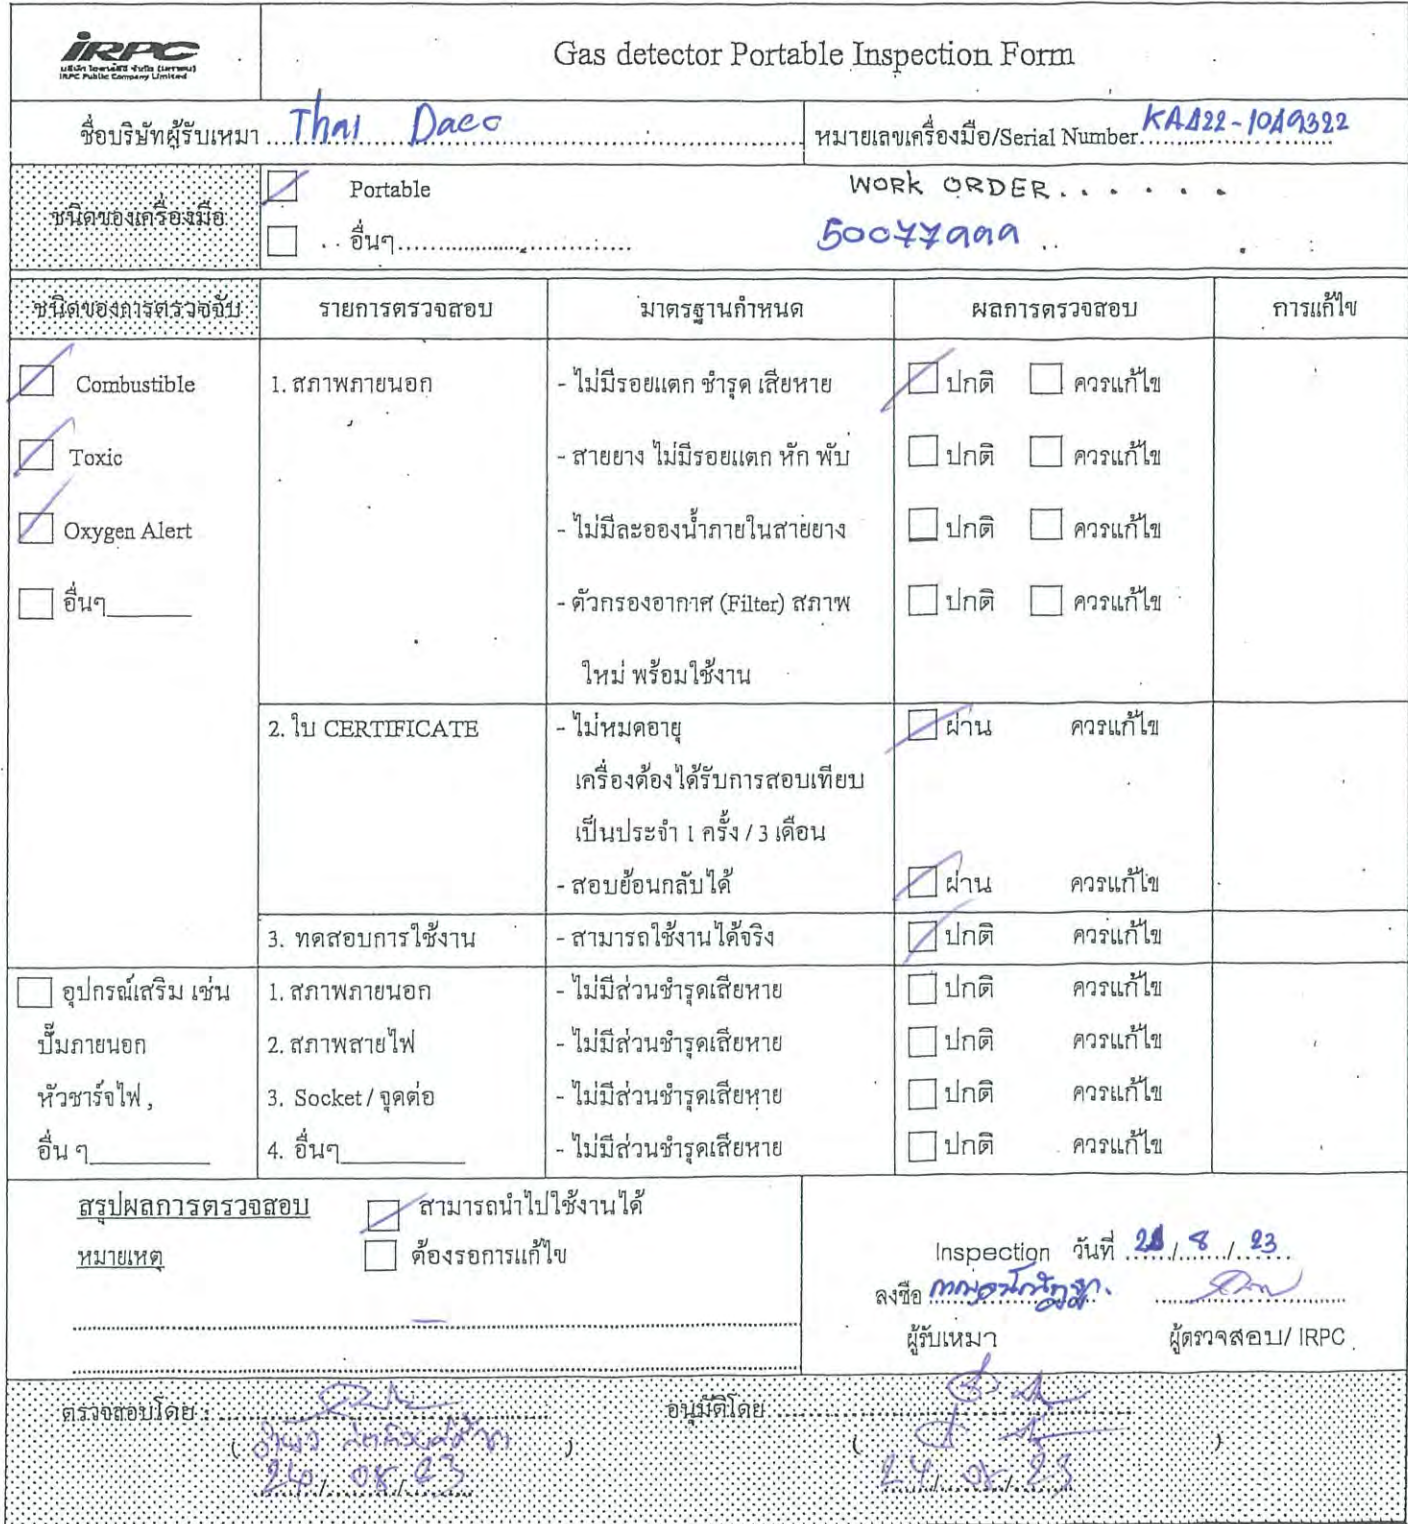 IRPC
บริษัท ไออาร์พีซี จำกัด (มหาชน)
IRPC Public Company Limited
Gas detector Portable Inspection Form
ชื่อบริษัทผู้รับเหมา Thai Daeo
หมายเลขเครื่องมือ/Serial Number
ชนิดของเครื่องมือ
Portable
WORK ORDER......
อื่นๆ
ชนิดของการตรวจจับ รายการตรวจสอบ มาตรฐานกำหนด ผลการตรวจสอบ การแก้ไข
Combustible 1. สภาพภายนอก - ไม่มีรอยแตก ชำรุด เสียหาย ปกติ ควรแก้ไข
Toxic - สายยาง ไม่มีรอยแตก หัก พับ ปกติ ควรแก้ไข
Oxygen Alert - ไม่มีละอองน้ำภายในสายยาง ปกติ ควรแก้ไข
อื่นๆ - ตัวกรองอากาศ (Filter) สภาพ ปกติ ควรแก้ไข
ใหม่ พร้อมใช้งาน
2. ใบ CERTIFICATE - ไม่หมดอายุ ผ่าน ควรแก้ไข
เครื่องต้องได้รับการสอบเทียบ
เป็นประจำ 1 ครั้ง / 3 เดือน
- สอบย้อนกลับได้ ผ่าน ควรแก้ไข
3. ทดสอบการใช้งาน - สามารถใช้งานได้จริง ปกติ ควรแก้ไข
อุปกรณ์เสริม เช่น 1. สภาพภายนอก - ไม่มีส่วนชำรุดเสียหาย ปกติ ควรแก้ไข
ปั๊มภายนอก 2. สภาพสายไฟ - ไม่มีส่วนชำรุดเสียหาย ปกติ ควรแก้ไข
หัวชาร์จไฟ , 3. Socket / จุดต่อ - ไม่มีส่วนชำรุดเสียหาย ปกติ ควรแก้ไข
อื่น ๆ 4. อื่นๆ - ไม่มีส่วนชำรุดเสียหาย ปกติ ควรแก้ไข
สรุปผลการตรวจสอบ สามารถนำไปใช้งานได้
หมายเหตุ ต้องรอการแก้ไข
Inspection วันที่ / 8 / 23
ลงชื่อ
ผู้รับเหมา ผู้ตรวจสอบ/ IRPC
ตรวจสอบโดย : อนุมัติโดย
24 / 08 / 23 24 / 08 / 23